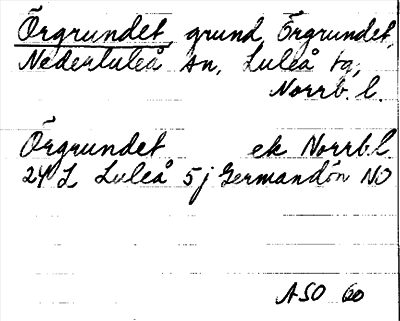 Örgrundet, grund, Örgrundet,
Nederluleå sn, Luleå tg,
Norrb. l.
Örgrundet ek Norrb l
24 L Luleå 5j Germandön NO
ASO 60